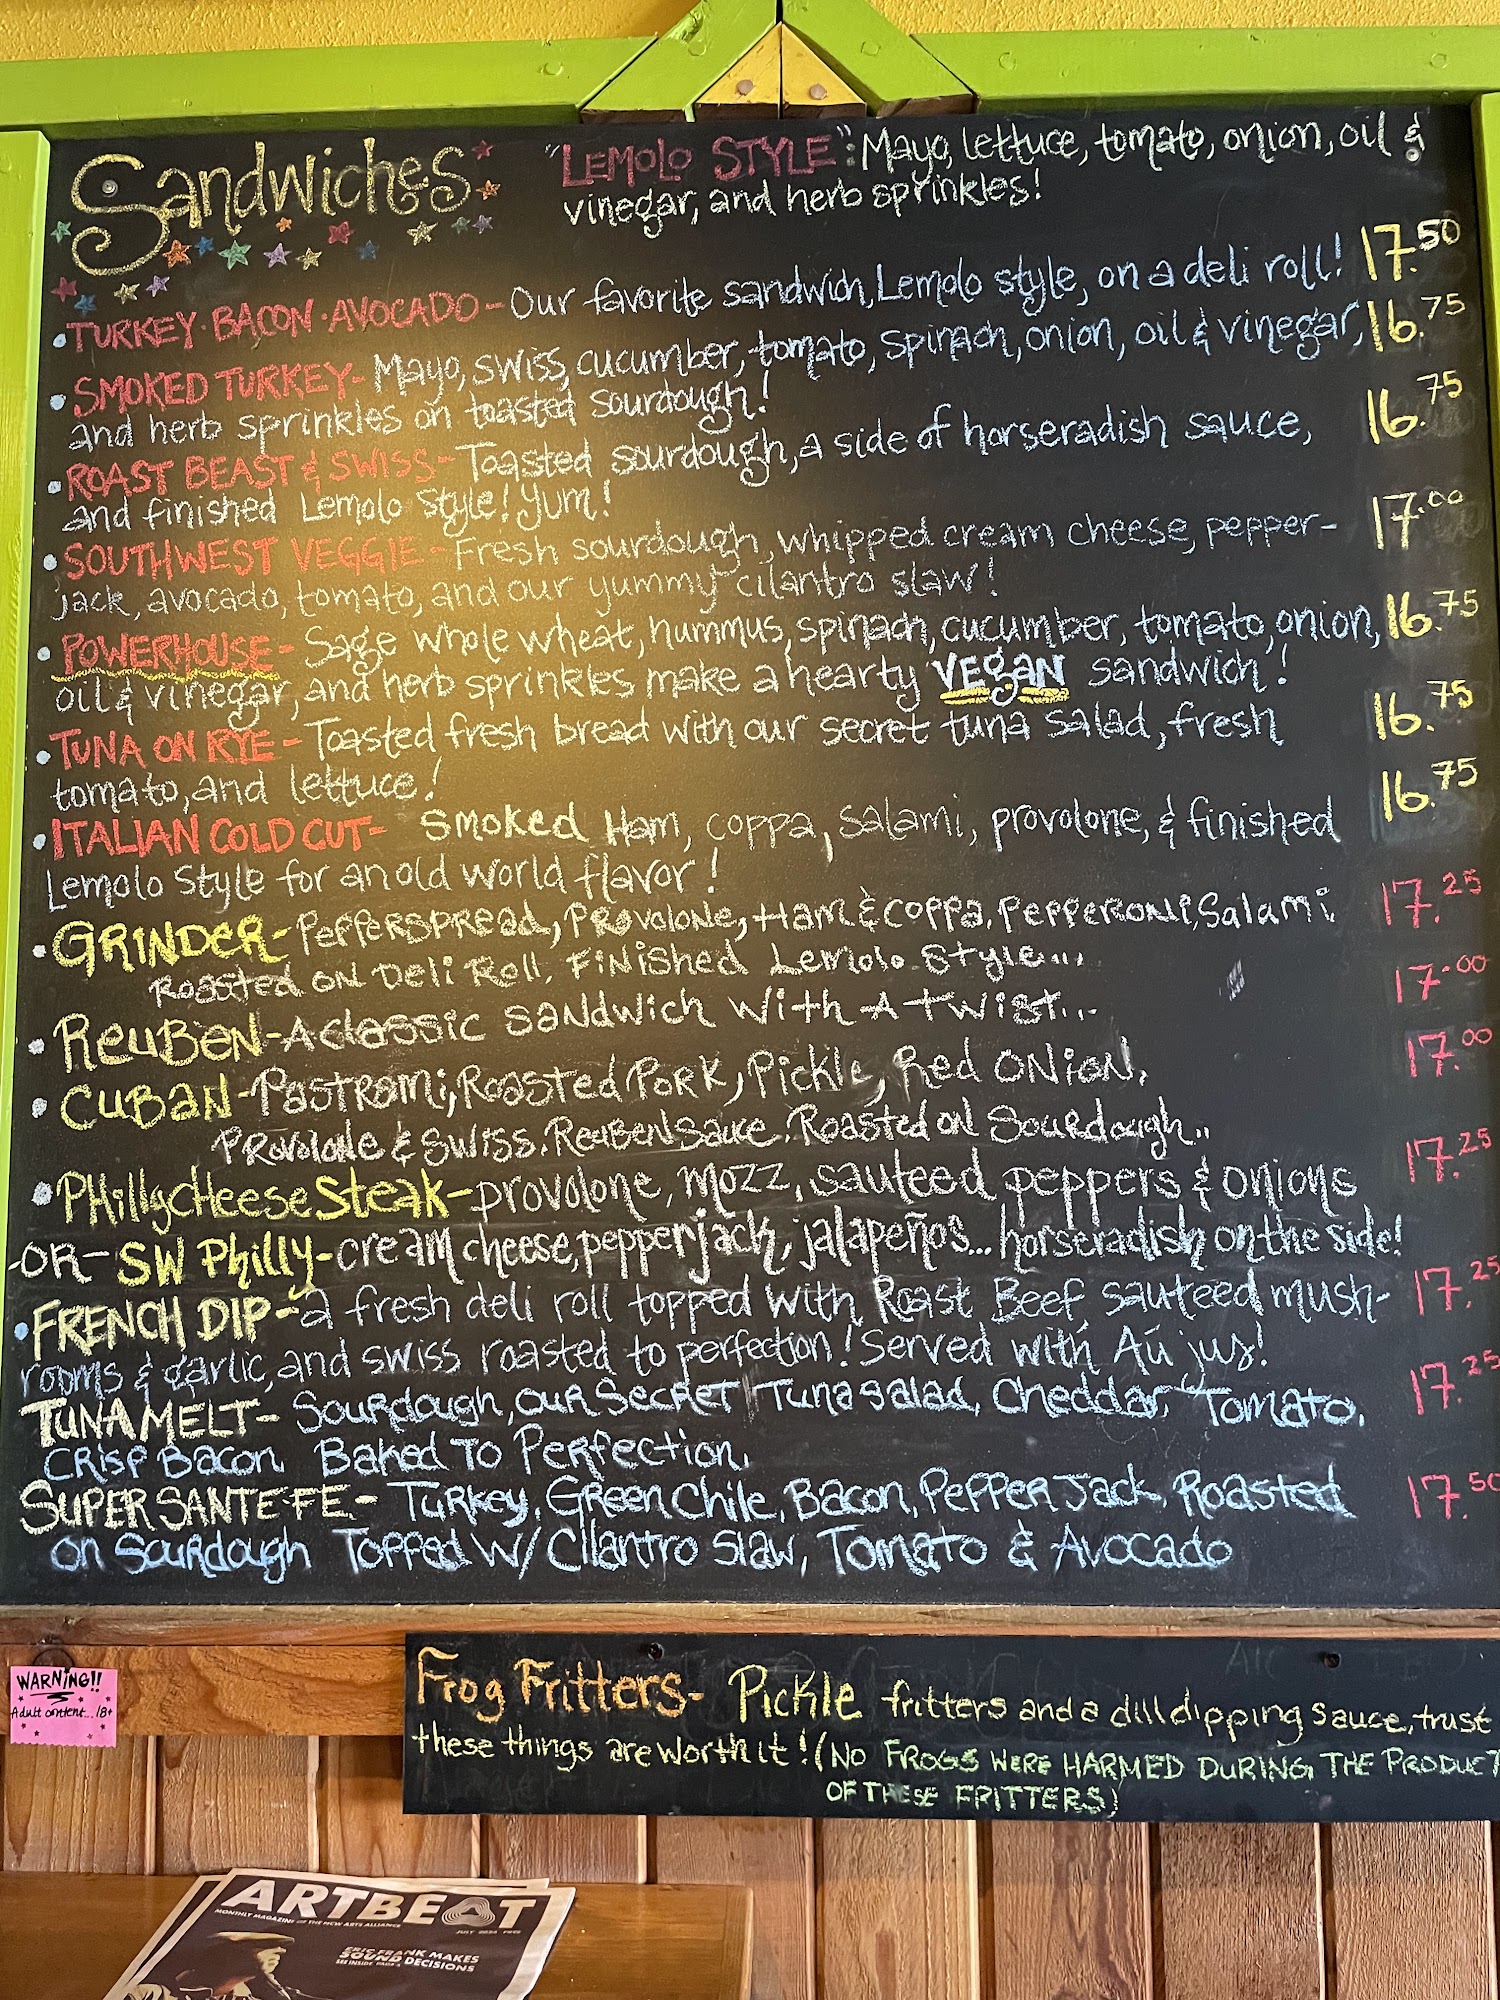 Sandwiches
"LEMOLO STYLE": Mayo, lettuce, tomato, onion, oil &
vinegar, and herb sprinkles!
• TURKEY·BACON·AVOCADO- Our favorite sandwich, Lemolo style, on a deli roll! 17.50
• SMOKED TURKEY- Mayo, swiss, cucumber, tomato, spinach, onion, oil & vinegar, 16.75
and herb sprinkles on toasted sourdough!
• ROAST BEAST & SWISS- Toasted sourdough, a side of horseradish sauce, 16.75
and finished Lemolo Style! Yum!
• SOUTHWEST VEGGIE- Fresh sourdough, whipped cream cheese, pepper- 17.00
jack, avocado, tomato, and our yummy cilantro slaw!
• POWERHOUSE- Sage whole wheat, hummus, spinach, cucumber, tomato, onion, 16.75
oil & vinegar, and herb sprinkles make a hearty VEGAN sandwich!
• TUNA ON RYE- Toasted fresh bread with our secret tuna salad, fresh 16.75
tomato, and lettuce!
• ITALIAN COLD CUT- Smoked Ham, coppa, salami, provolone, & finished 16.75
Lemolo Style for an old world flavor!
• GRINDER- PEPPERSPREAD, PROVOLONE, HAM & COPPA, PEPPERONI, Salami 17.25
ROASTED ON Deli Roll, FINISHED Lemolo Style...
• REUBEN- A classic SANDWICH WITH A TWIST... 17.00
• CUBAN- PASTRAMI, ROASTED PORK, PICKLE, Red ONION, 17.00
PROVOLONE & SWISS, REUBEN SAUCE, ROASTED ON Sourdough..
• PHillyCHeese Steak- provolone, mozz, sauteed peppers & onions 17.25
-OR- SW Philly- cream cheese, pepperjack, jalapeños... horseradish on the side!
• FRENCH DIP- a fresh deli roll topped with Roast Beef, sauteed mush- 17.25
rooms & garlic, and swiss roasted to perfection! Served with Aú jus!
TUNA MELT- Sourdough, our Secret Tuna salad, Cheddar, Tomato, 17.25
CRISP BACON Baked TO Perfection.
SUPER SANTE-FE- Turkey, Green Chile, Bacon, Pepper Jack, Roasted 17.50
on Sourdough Topped W/ Cilantro Slaw, Tomato & Avocado
WARNING!!
Adult content... 18+
Frog Fritters- Pickle fritters and a dill dipping sauce, trust
these things are worth it! (NO FROGS WERE HARMED DURING THE PRODUCT
OF THESE FRITTERS)
ARTBEAT
MONTHLY MAGAZINE OF THE NCW ARTS ALLIANCE
JULY 2024 FREE
ERIC FRANK MAKES
SOUND DECISIONS
SEE INSIDE PAGE